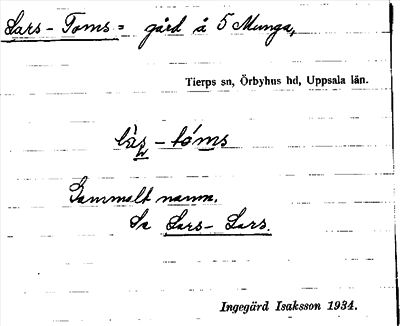 Lars-Toms = gård å 5 Munga,
Tierps sn, Örbyhus hd, Uppsala län.
làs - tóms
Gammalt namn.
Se Lars-Lars.
Ingegärd Isaksson 1934.